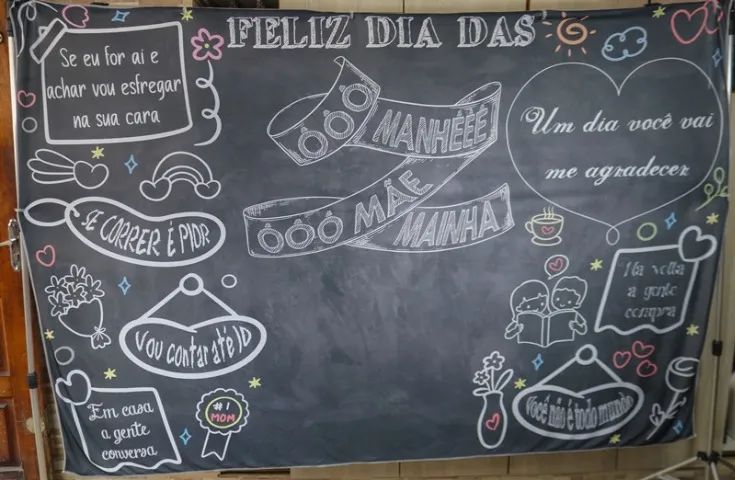 FELIZ DIA DAS
Se eu for ai e
achar vou esfregar
na sua cara
OOO MANHÊÊÊ
OOO MÃE
MAINHA
Um dia você vai
me agradecer
SE CORRER É PIOR
Na volta
a gente
compra
Vou contar até 10
Você não é todo mundo
Em casa
a gente
conversa
#1
MOM